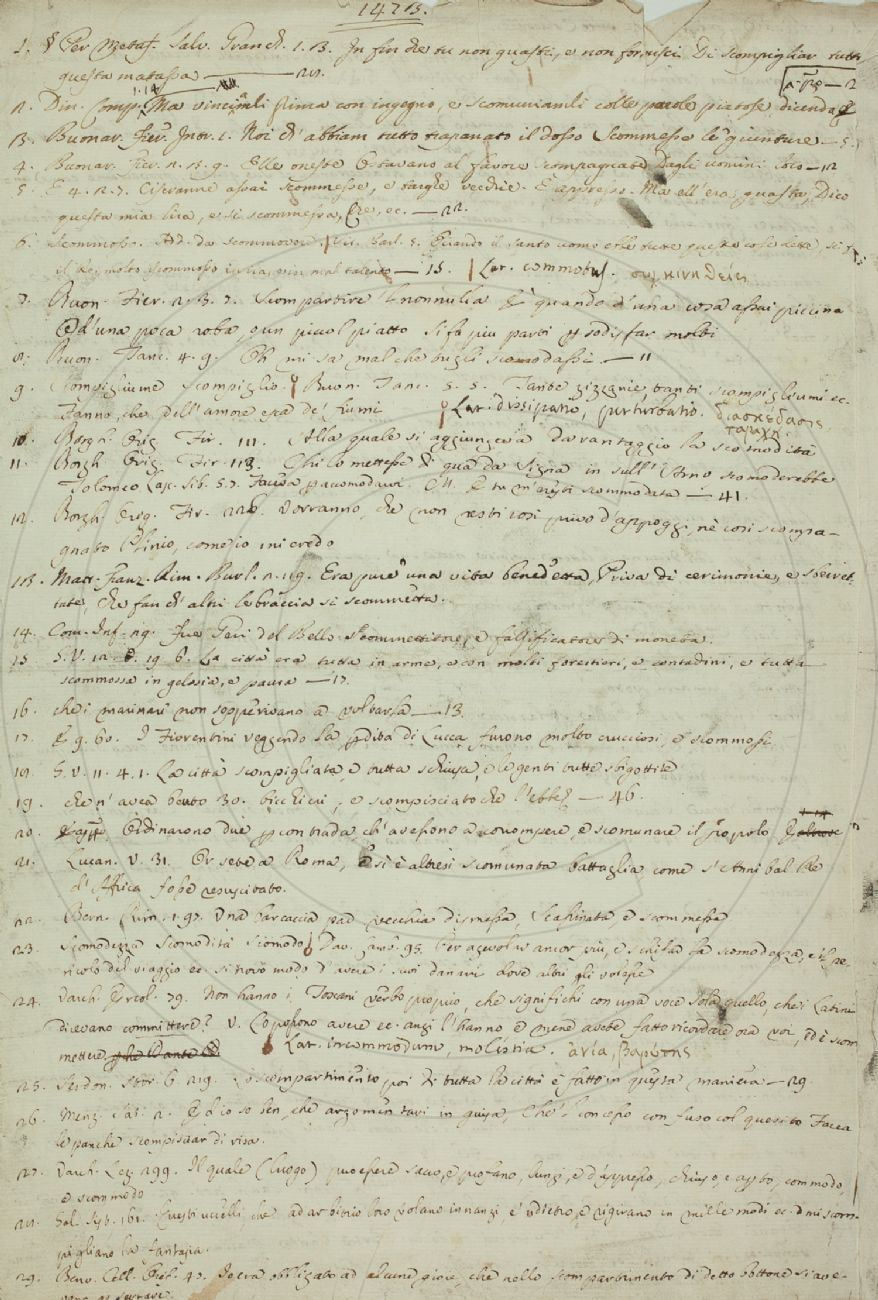 14713.
1. § Per Metaf. Salv. Granch. 1. 13. In fin che tu non guasti, e non fornisci Di scompigliar tutta
questa matassa
2. Din. Comp. Ma vincianli prima con ingegno, e scomunianli colle parole piatose dicendo
13. Buonar. Fier. Intr. 1. Noi ch' abbiam tutto trapanato il dosso Scommesse le giunture — 5.
4. Buonar. Fier. 2. 13. 9. Elle oneste Si stavano al favore scompagnate Dagli uomini loro — 12
5. E 4. 2. 7. Ciscranne assai scommesse, e targhe vecchie. E appresso. Ma ell' era guasta, Dico
questa mia lira, e si scommessa, Che, ec. — 22.
6. Scommosso. Ad. da scommovere. Vit. Barl. 5. Quando il santo uomo ebbe tutte queste cose dette, si
il Re molto scommosso in ira, in mal talento — 15. Lat. commotus. συγκινηθείς
7. Buon. Fier. 2. 3. 7. Scompartire E quando d' una cosa assai piccina
O d' una poca roba, o un piccol piatto Si fa più parti p sodisfar molti
8. Buon. Tanc. 4. 9. Oh mi sa mal che tu gli scomodassi — 11
9. Scompigliume Scompiglio. Buon. Tanc. 5. 5. Tante zizzanie, tanti scompigliumi ec.
Fanno, che dell' amore esca de' fiumi Lat. dissipatio, perturbatio. διασκέδασις,
ταραχή.
10. Borgh. Orig. Fir. 111. Alla quale si aggiungeva da vantaggio la scomodità
11. Borgh. Orig. Fir. 113. Chi lo mettesse di qua da Signa in sull' Arno scomoderebbe
Tolomeo — 41.
12. Borgh. Orig. Fir. 226. Vorranno, che non resti così privo d' appoggi, nè così scompa-
gnato Plinio, com' io mi credo
113. Matt. Franz. Rim. Burl. 2. 119. Era pure una vita benedetta, Priva di cerimonie, e sberret-
tate, Che fan ch' altri le braccia si scommetta.
14. Com. Inf. 29. Fue Geri del Bello Scommettitore, e falsificatore di moneta.
15 G. V. 12. 19. 6. La città era tutta in arme, e con molti forestieri, e contadini, e tutta
scommossa in gelosia, e paura — 17.
16. che i marinari non sopperivano a voltarla — 13.
17. E 9. 60. I Fiorentini veggendo la pdita di Lucca furono molto crucciosi, e scommossi
18. G. V. 11. 4. 1. La città scompigliata, e tutta schiusa, e le genti tutte sbigottite
19. che n' avea beuto 30. bicchieri, e scompisciato che l' ebbe — 46.
20. Ordinarono due p contrada ch' avessono a corrompere, e scomunare il popolo
21. Lucan. V. 31. Or sete a Roma, e si è altresì scomunata battaglia come s' Annibal Re
d' Affrica fosse resuscitato.
22. Bern. Rim. 1. 97. Una barcaccia par vecchia dismessa, Scassinata, e scommessa
23. Scomodezza Scomodità Scomodo Dav. Camb. 95. Per agevolar ancor più, e schifar la scomodezza, e 'l pe-
ricolo del viaggio ec. si trovò modo d' avere i suoi danari dove altri gli volesse
24. Varch. Ercol. 79. Non hanno i Toscani verbo proprio, che significhi con una voce sola quello, che i Latini
dicevano committere? V. Lo possono avere ec. anzi l' hanno e mene avete fatto ricordare ora voi, ed è scom
mettere Lat. incommodum, molestia. ἀνία, βαρύτης
25. Serdon. Stor. 6. 219. Lo scompartimento poi di tutta la città è fatto in questa maniera — 29.
26. Menz. Sat. 2. E d' io so ben, che argomentavi in guisa, Che 'l concesso con fuso col quesito Facea
le panche scompisciar di risa.
27. Varch. Lez. 299. Il quale (luogo) puo essere sacro, e profano, lungi, e d' appresso, chiuso e apto, commodo,
e scommodo
28. Sal. Questi uccelli, che ad arbitrio loro volano innanzi e 'ndietro, e rigirano in mille modi ec. mi scom-
pigliano la fantasia.
29. Benv. Cell. Oref. 47. Io era obbligato ad alcune gioie, che nello scompartimento di detto bottone si ave-